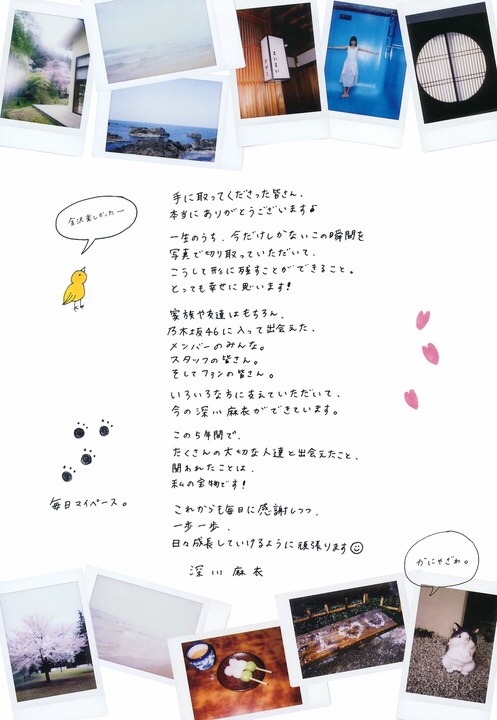 金沢楽しかったー
手に取ってくださった皆さん、
本当にありがとうございます♪
一生のうち、今だけしかないこの瞬間を
写真で切り取っていただいて、
こうして形に残すことができること。
とっても幸せに思います!
家族や友達はもちろん、
乃木坂46に入って出会えた、
メンバーのみんな。
スタッフの皆さん。
そしてファンの皆さん。
いろいろな方に支えていただいて、
今の深川麻衣ができています。
この5年間で、
たくさんの大切な人達と出会えたこと、
関われたことは、
私の宝物です!
毎日マイペース。
これからも毎日に感謝しつつ、
一歩一歩、
日々成長していけるように頑張ります
深川麻衣
かにゃざわ。